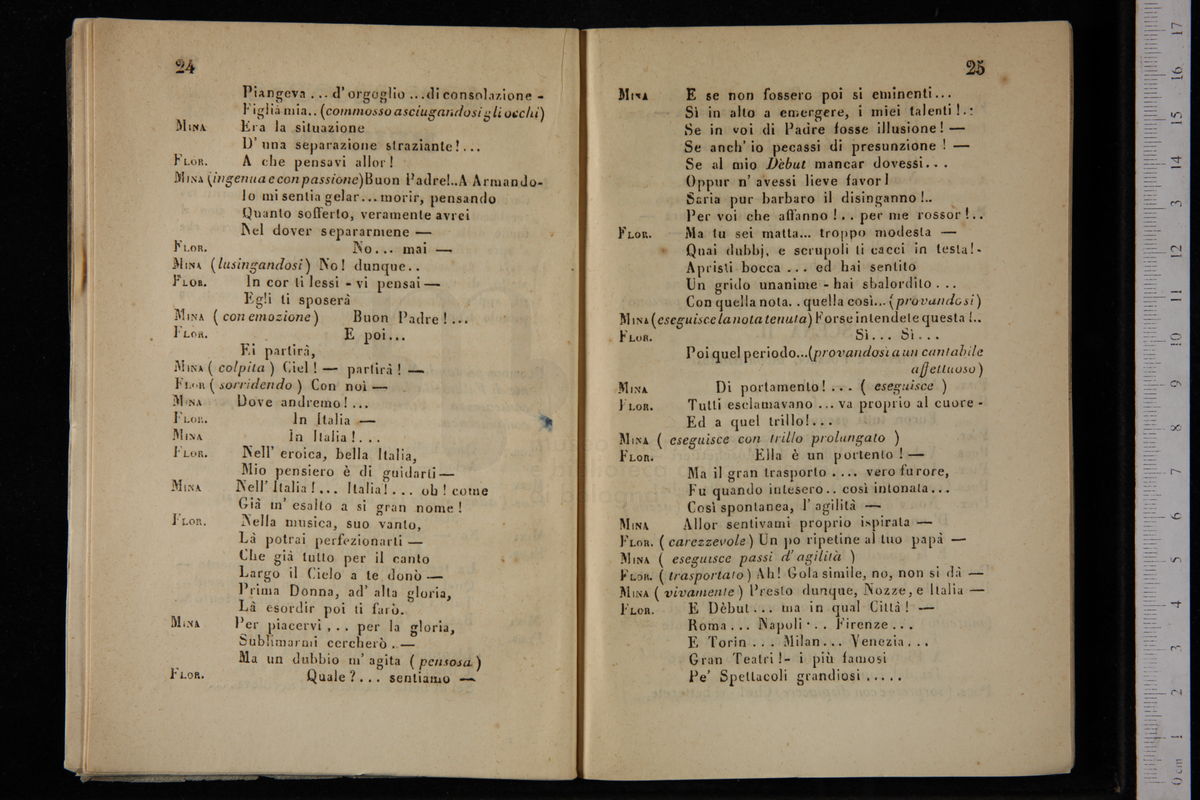 24
Piangeva ... d' orgoglio ... di consolazione -
Figlia mia.. (commosso asciugandosi gli occhi)
MINA Era la situazione
D' una separazione straziante!...
FLOR. A che pensavi allor!
MINA (ingenua e con passione) Buon Padre!..A Armando-
Io mi sentia gelar... morir, pensando
Quanto sofferto, veramente avrei
Nel dover separarmene —
FLOR. No... mai —
MINA (lusingandosi) No! dunque..
FLOR. In cor ti lessi - vi pensai —
Egli ti sposerà
MINA ( con emozione ) Buon Padre!...
FLOR. E poi...
Ei partirà,
MINA ( colpita ) Ciel! — partirà! —
FLOR ( sorridendo ) Con noi —
MINA Dove andremo!...
FLOR. In Italia —
MINA In Italia!...
FLOR. Nell' eroica, bella Italia,
Mio pensiero è di guidarti —
MINA Nell' Italia!... Italia!... oh! come
Già m' esalto a sì gran nome!
FLOR. Nella musica, suo vanto,
Là potrai perfezionarti —
Che già tutto per il canto
Largo il Cielo a te donò —
Prima Donna, ad' alta gloria,
Là esordir poi ti farò.
MINA Per piacervi ... per la gloria,
Sublimarmi cercherò . —
Ma un dubbio m' agita ( pensosa )
FLOR. Quale?... sentiamo —
25
MINA E se non fossero poi si eminenti...
Sì in alto a emergere, i miei talenti!.:
Se in voi di Padre fosse illusione! —
Se anch' io pecassi di presunzione! —
Se al mio Dèbut mancar dovessi...
Oppur n' avessi lieve favor!
Saria pur barbaro il disinganno!..
Per voi che affanno!.. per me rossor!..
FLOR. Ma tu sei matta... troppo modesta —
Quai dubbj, e scrupoli ti cacci in testa!-
Apristi bocca ... ed hai sentito
Un grido unanime - hai sbalordito ...
Con quella nota.. quella così... (provandosi)
MINA (eseguisce la nota tenuta) Forse intendete questa!..
FLOR. Sì... Sì...
Poi quel periodo...(provandosi a un cantabile
affettuoso)
MINA Di portamento!... ( eseguisce )
FLOR. Tutti esclamavano ... va proprio al cuore -
Ed a quel trillo!...
MINA ( eseguisce con trillo prolungato )
FLOR. Ella è un portento! —
Ma il gran trasporto .... vero furore,
Fu quando intesero.. così intonata...
Così spontanea, l' agilità —
MINA Allor sentivami proprio ispirata —
FLOR. ( carezzevole ) Un po ripetine al tuo papà —
MINA ( eseguisce passi d' agilità )
FLOR. ( trasportato ) Ah! Gola simile, no, non si dà —
MINA ( vivamente ) Presto dunque, Nozze, e Italia —
FLOR. E Dèbut... ma in qual Città! —
Roma... Napoli... Firenze...
E Torin ... Milan... Venezia...
Gran Teatri!- i più famosi
Pe' Spettacoli grandiosi .....